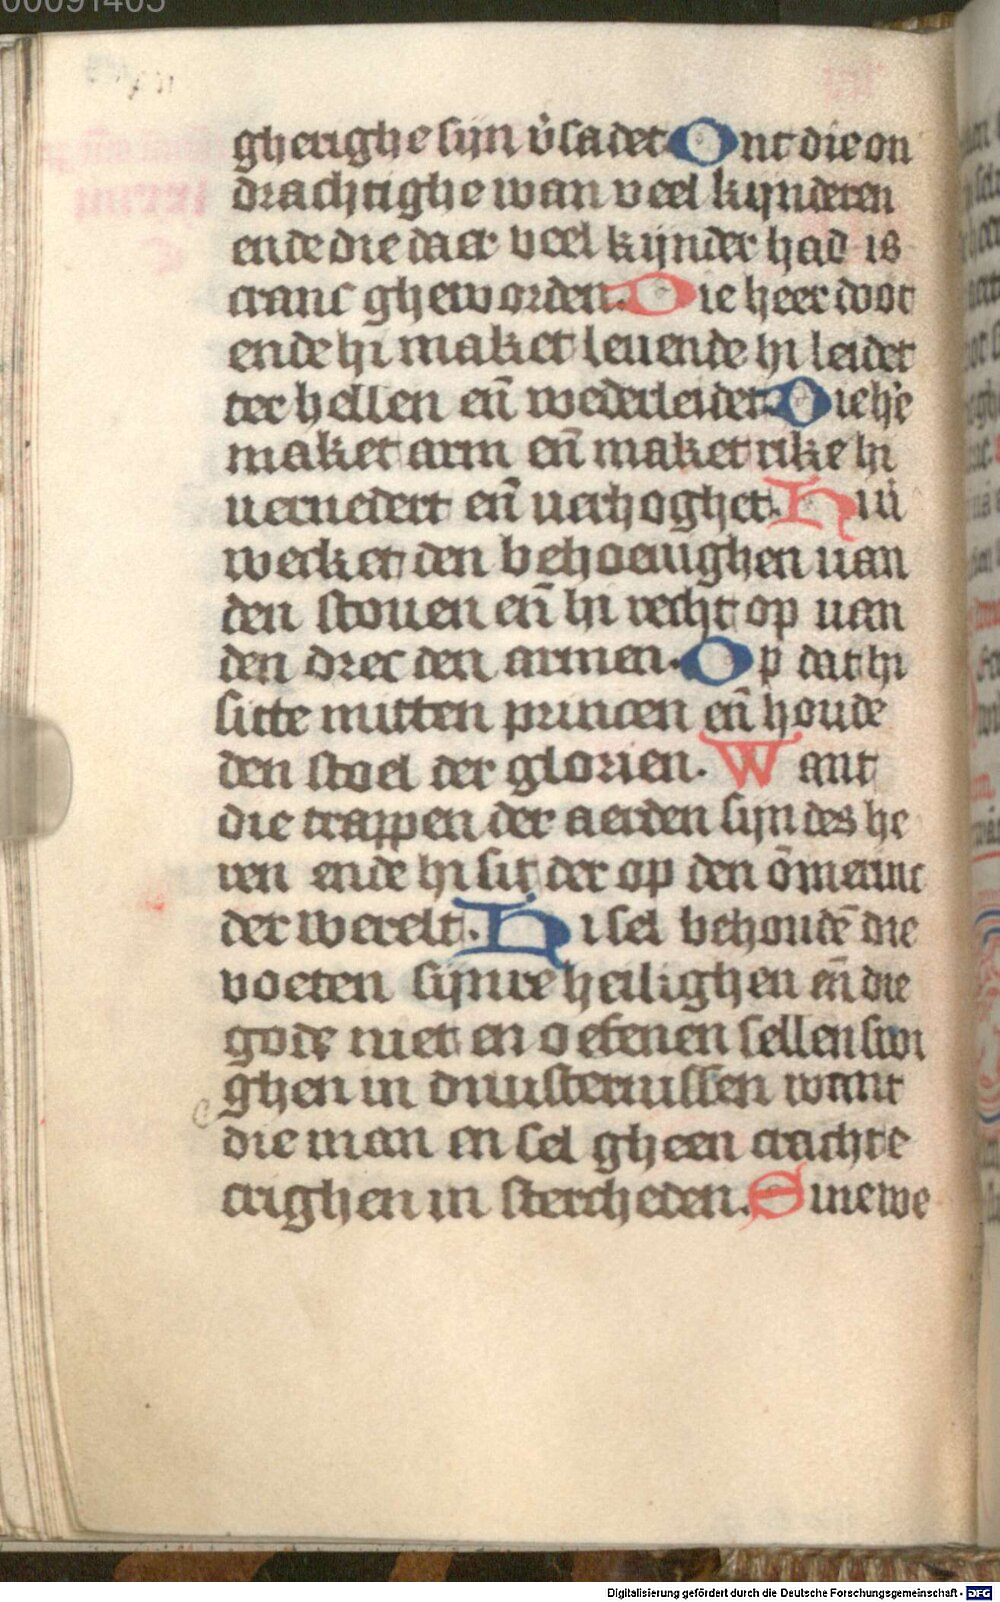 00091405
gherighe sijn v̄sadet Ont die on
drachtighe wan veel kijnderen
ende die daer veel kijnder had is
cranc gheworden. Die heer doot
ende hi maket leuende hi leidet
ter hellen en̄ wederleidet. Die he
maket arm en̄ maket rike hi
uernedert en̄ uerhoghet. Hi
wecket den behoeuighen uan
den stouen en̄ hi recht op uan
den drec den armen. Op dat hi
sitte mitten princen en̄ houde
den stoel der glorien. Want
die trappen der aerden sijn des he
ren ende hi sit der op den ōmeganc
der werelt. Hi sel behoudē die
voeten sijnre heilighen en̄ die
gode niet en oefenen sellen swi
ghen in duusternissen want
die man en sel gheen crachte
crighen in stercheden. Sine we
Digitalisierung gefördert durch die Deutsche Forschungsgemeinschaft - DFG